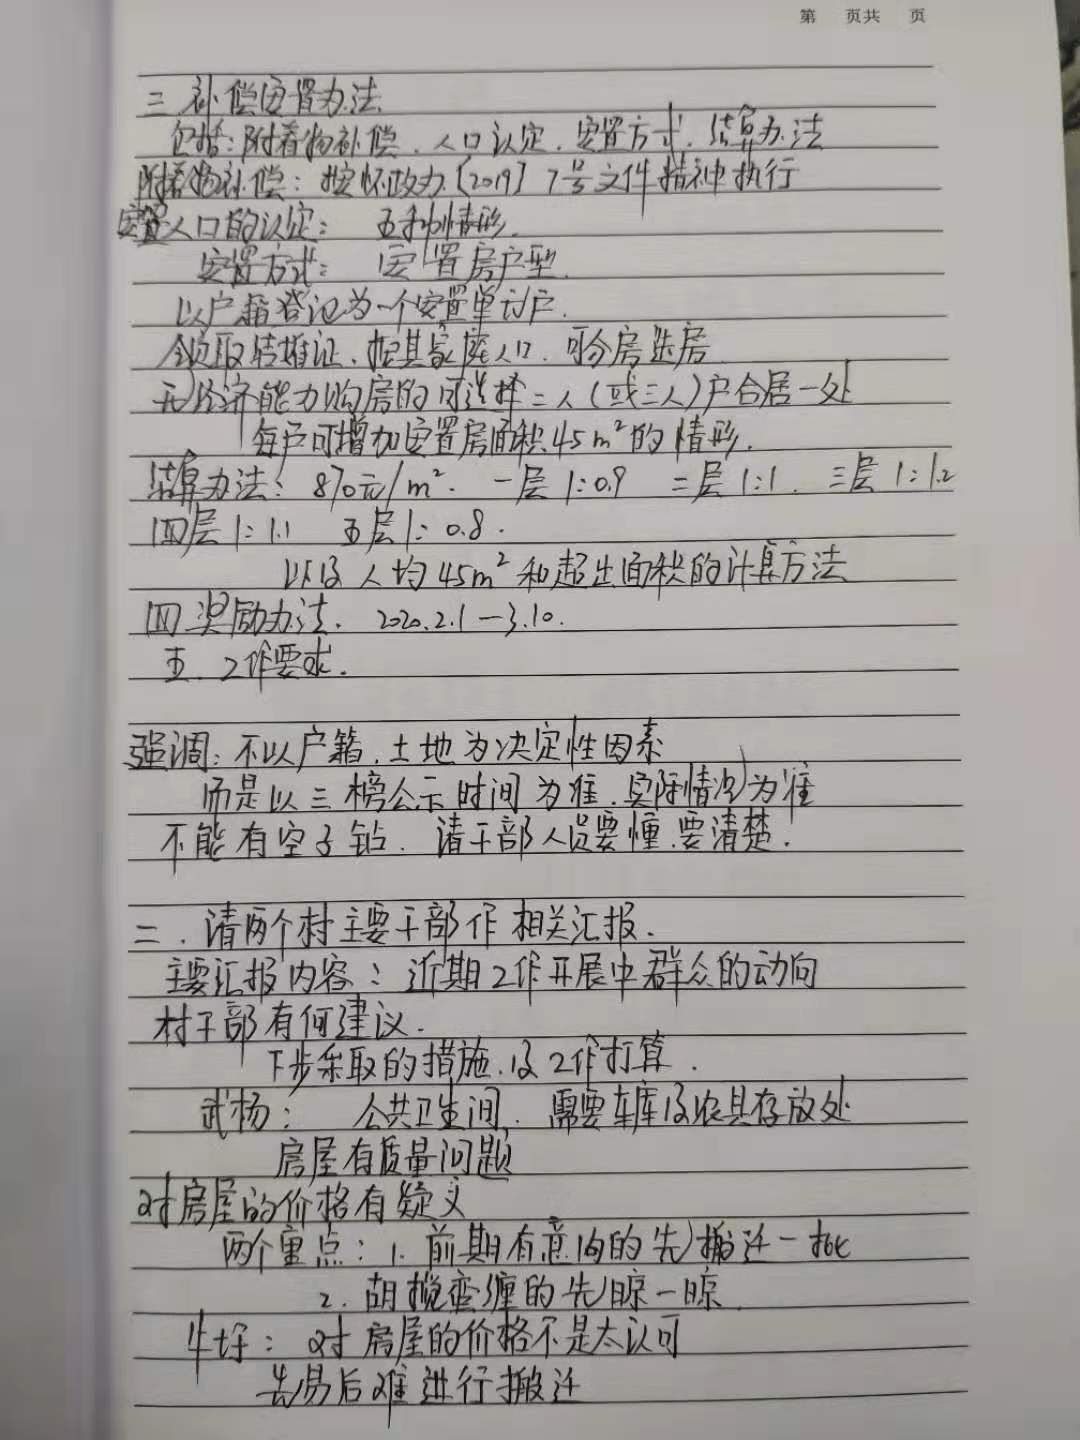 第 页共 页
三 补偿安置办法
包括:附着物补偿、人口认定、安置方式、结算办法
附着物补偿:按怀政办[2019]7号文件精神执行
安置人口的认定: 五种情形.
安置方式: 安置房户型.
以户籍登记为一个安置单订户.
领取结婚证、按其家庭人口、可分房选房
无经济能力购房的可选择二人(或三人)户合居一处
每户可增加安置房面积45m²的情形.
结算办法: 870元/m². 一层1:0.9 二层1:1. 三层1:1.2
四层1:1.1 五层1:0.8.
以及人均45m²和超出面积的计算方法
四 奖励办法. 2020.2.1—3.10.
五.工作要求.
强调:不以户籍、土地为决定性因素
而是以三榜公示时间为准.实际情况为准
不能有空子钻. 请干部人员要懂.要清楚.
二.请两个村主要干部作相关汇报.
主要汇报内容:近期工作开展中群众的动向
村干部有何建议.
下步采取的措施.及工作打算.
武杨: 公共卫生间, 需要车库及农具存放处
房屋有质量问题
对房屋的价格有疑义
两个重点:1.前期有意向的先搬迁一批
2.胡搅蛮缠的先晾一晾.
牛圩: 对房屋的价格不是太认可
先易后难进行搬迁